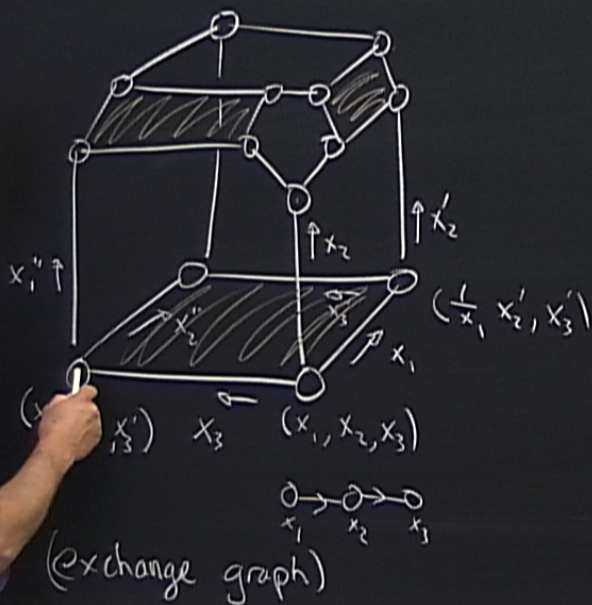 ↑ x₂'
x₁'' ↑
↑ x₂
x₃
x₂''
(1/x₁ x₂', x₃')
x₁
(x , x₃')
x₃
(x₁, x₂, x₃)
x₁ x₂ x₃
(exchange graph)